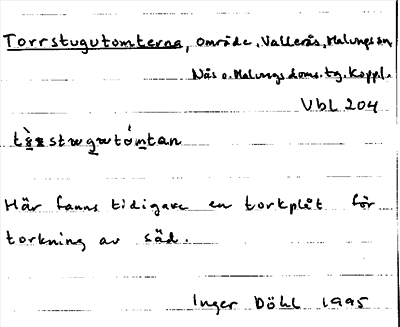 Torrstugutomterna, område, Vallerås, Malungs sn
Näs o. Malungs doms. tg. Koppl.
Vbl 204
Här fanns tidigare en torkplåt för
torkning av säd.
Inger Döhl 1995